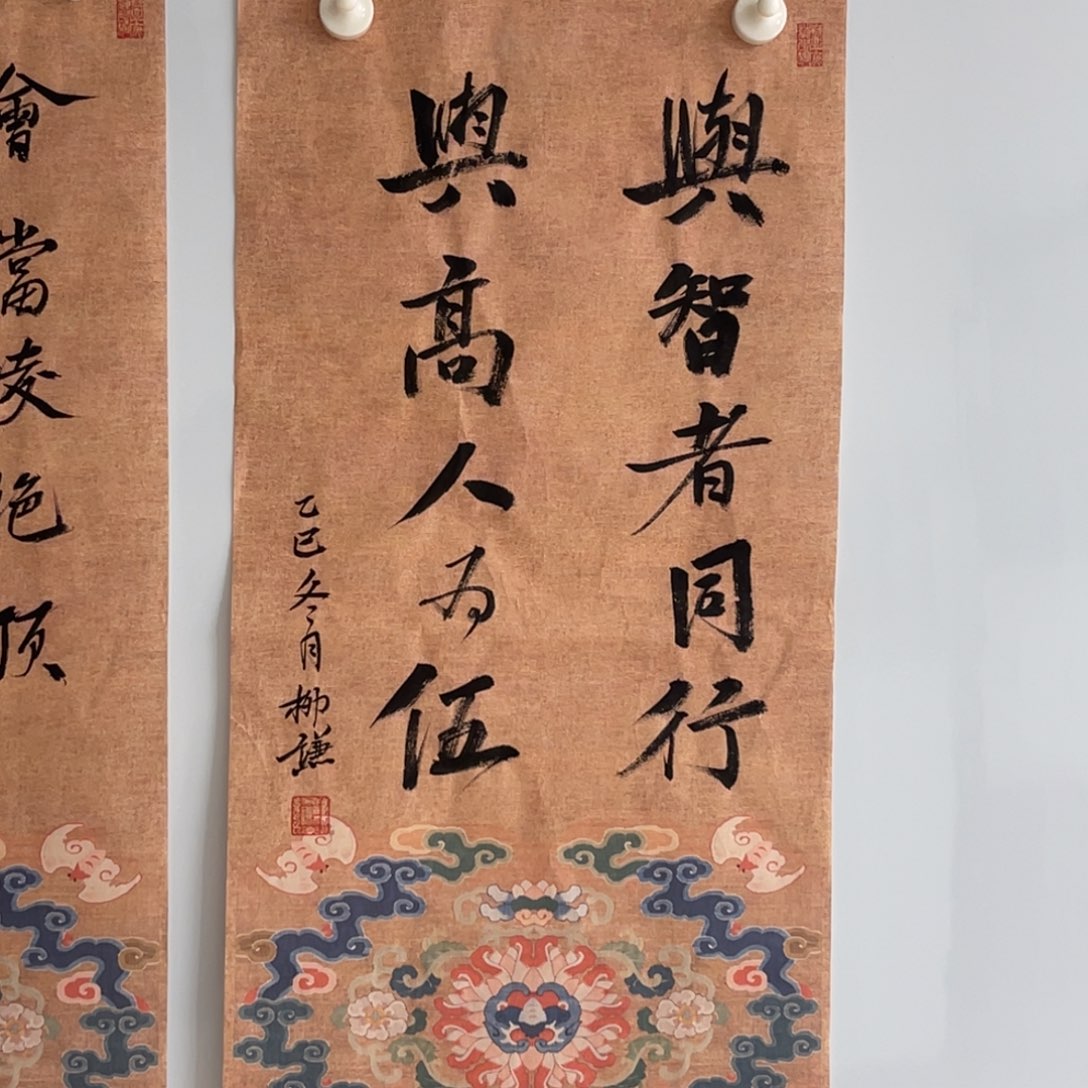 與智者同行
與高人为伍
乙巳冬月柳谦
會當凌绝顶